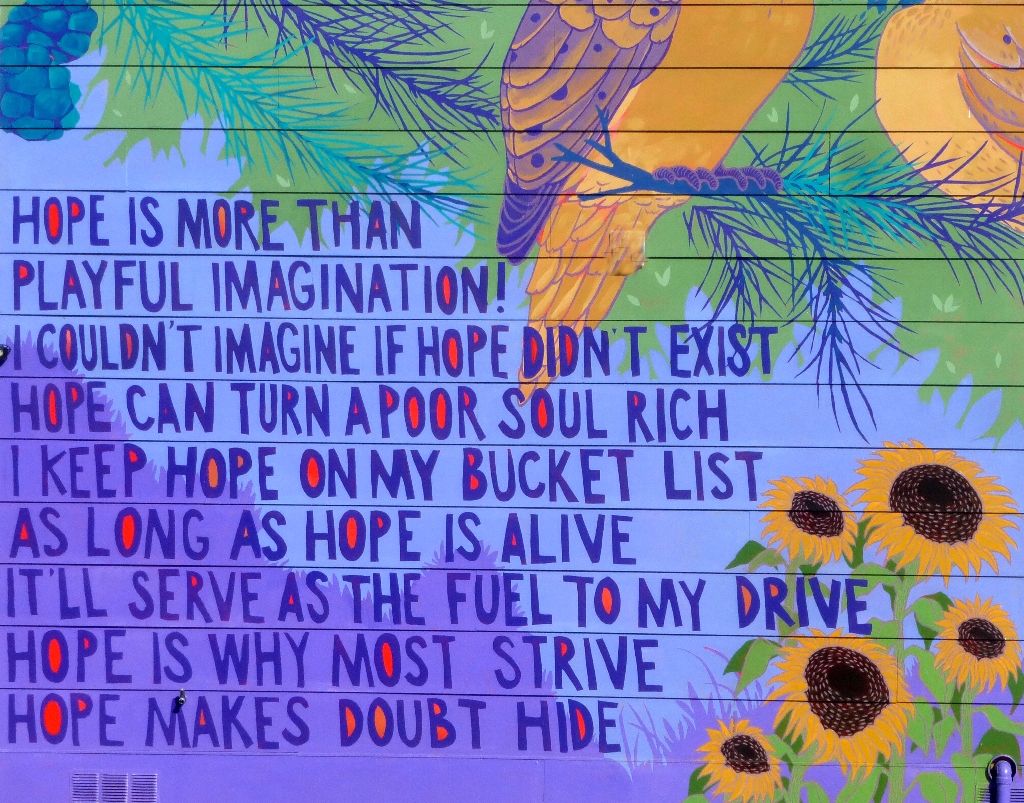 HOPE IS MORE THAN
PLAYFUL IMAGINATION!
I COULDN'T IMAGINE IF HOPE DIDN'T EXIST
HOPE CAN TURN A POOR SOUL RICH
I KEEP HOPE ON MY BUCKET LIST
AS LONG AS HOPE IS ALIVE
IT'LL SERVE AS THE FUEL TO MY DRIVE
HOPE IS WHY MOST STRIVE
HOPE MAKES DOUBT HIDE